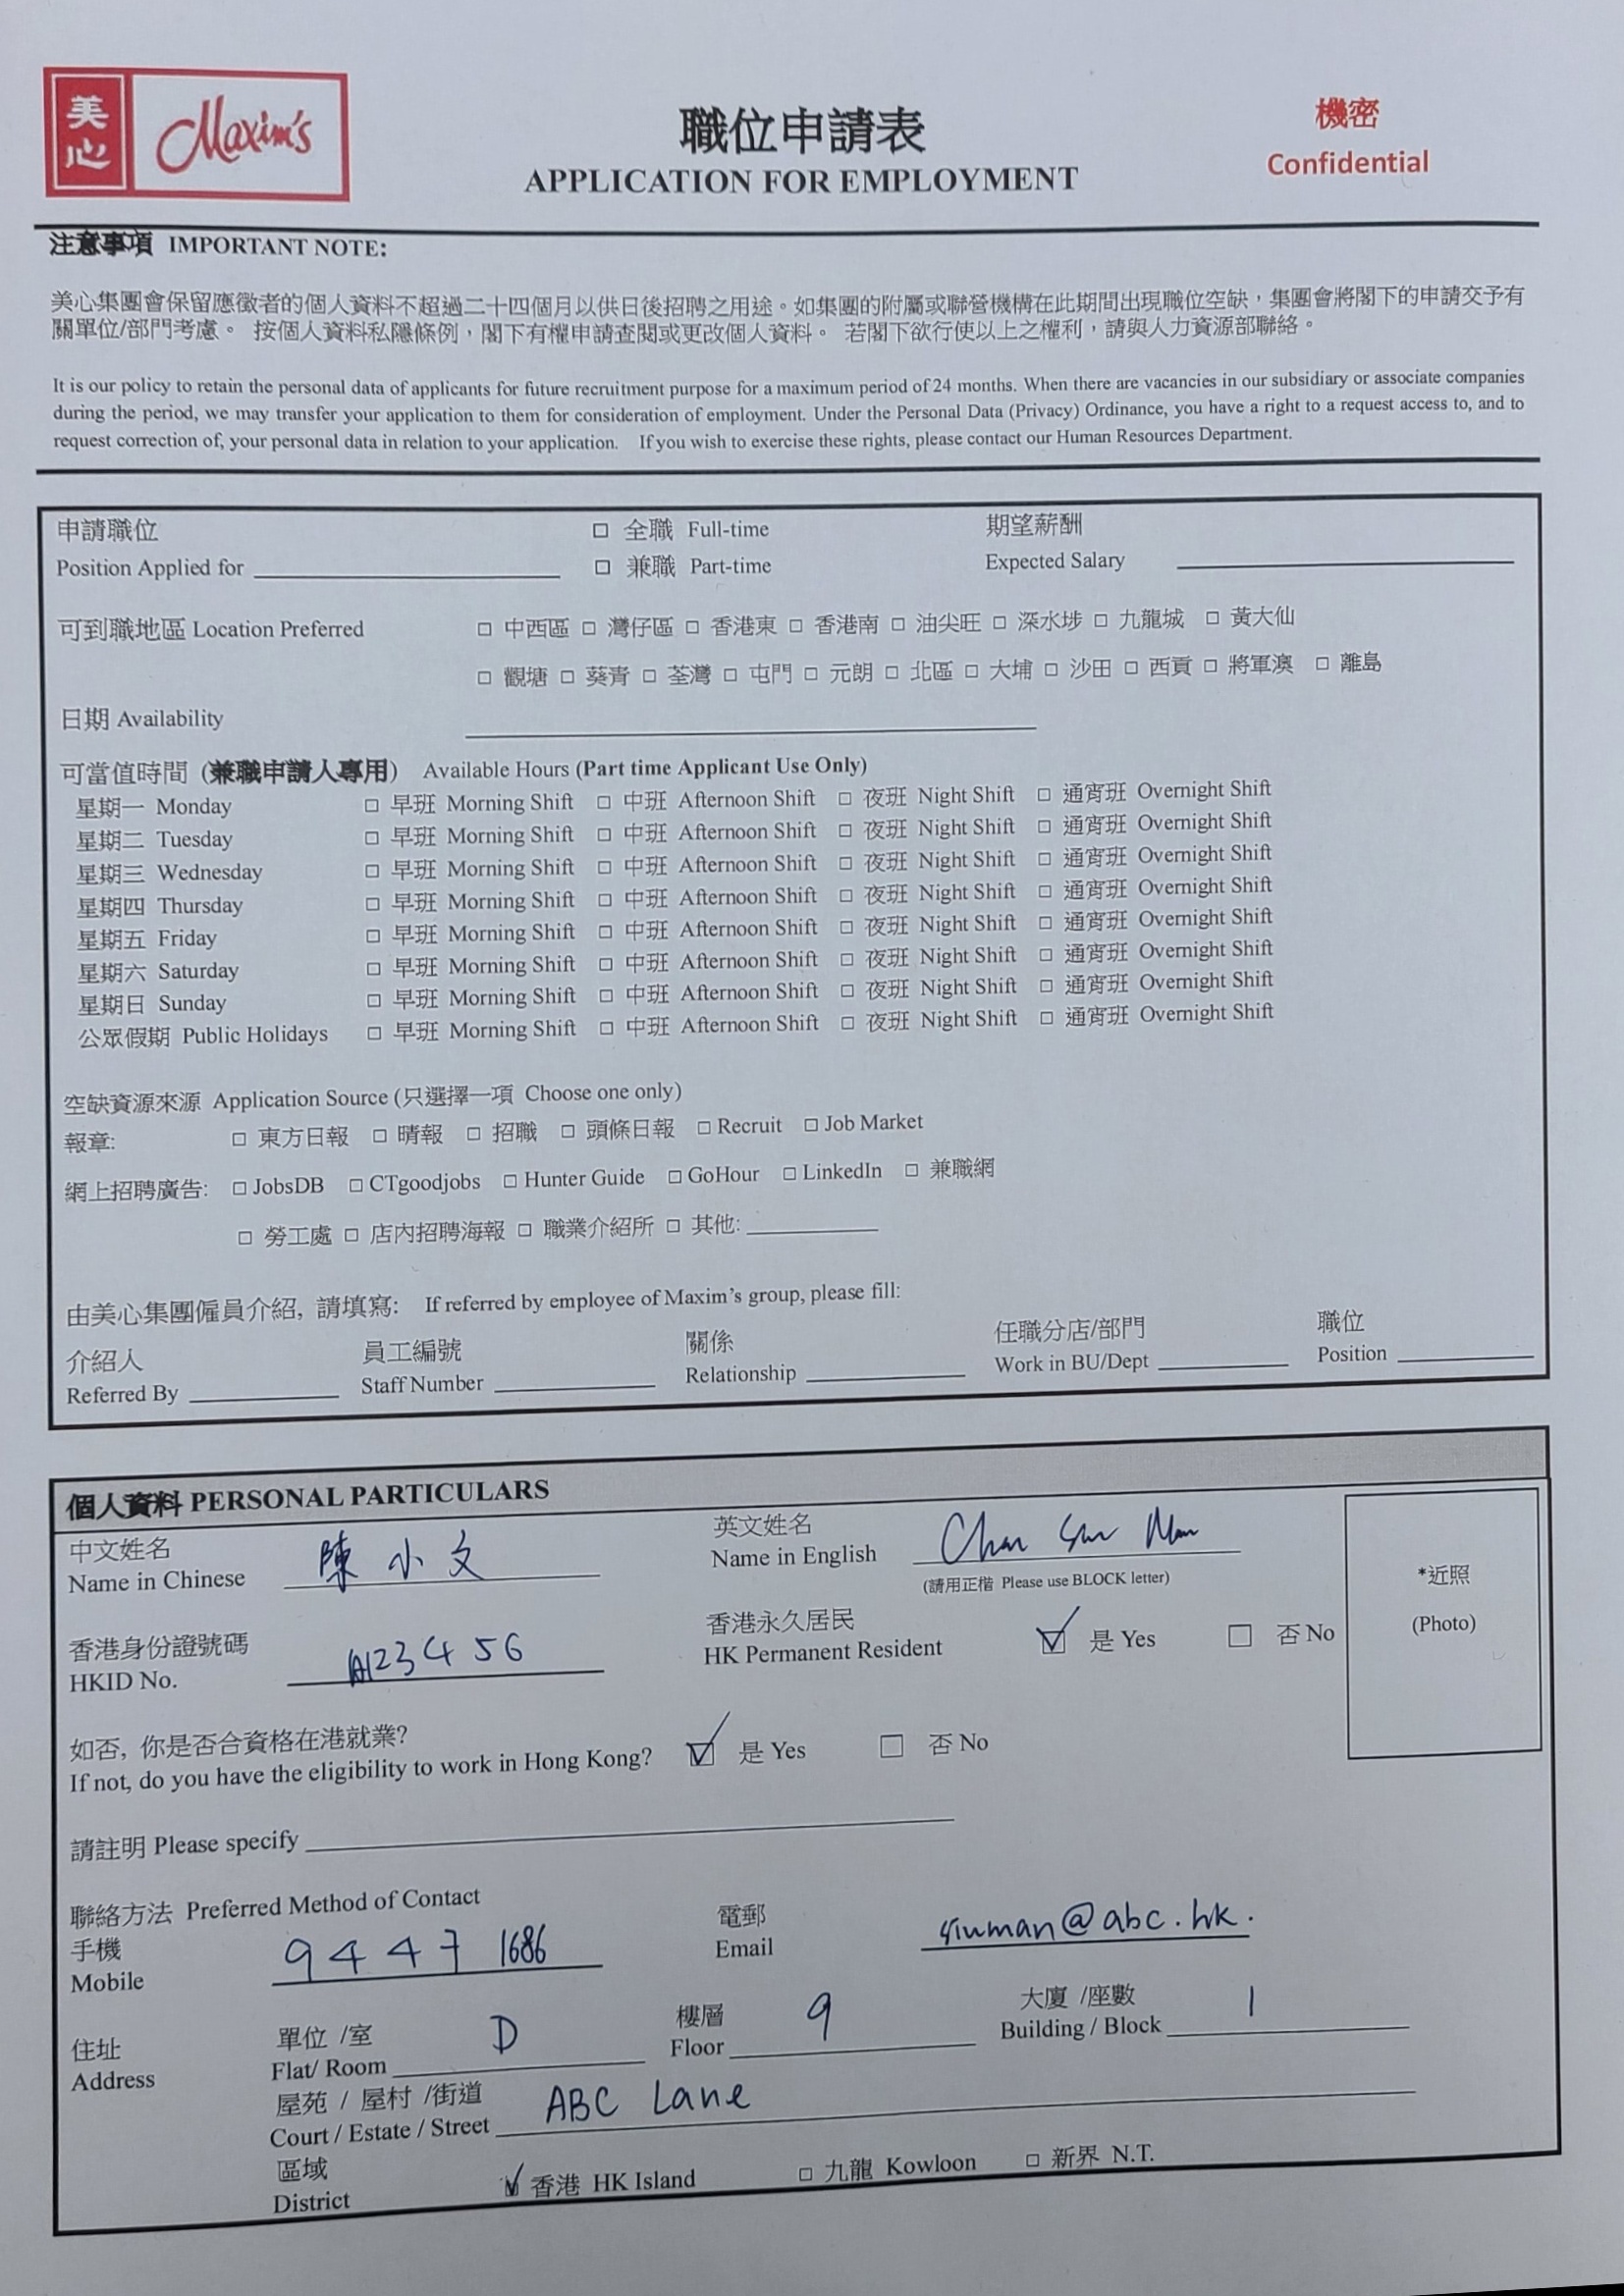 美心 Maxim's
職位申請表
APPLICATION FOR EMPLOYMENT
機密
Confidential
注意事項 IMPORTANT NOTE:
美心集團會保留應徵者的個人資料不超過二十四個月以供日後招聘之用途。如集團的附屬或聯營機構在此期間出現職位空缺，集團會將閣下的申請交予有
關單位/部門考慮。 按個人資料私隱條例，閣下有權申請查閱或更改個人資料。 若閣下欲行使以上之權利，請與人力資源部聯絡。
It is our policy to retain the personal data of applicants for future recruitment purpose for a maximum period of 24 months. When there are vacancies in our subsidiary or associate companies
during the period, we may transfer your application to them for consideration of employment. Under the Personal Data (Privacy) Ordinance, you have a right to a request access to, and to
request correction of, your personal data in relation to your application. If you wish to exercise these rights, please contact our Human Resources Department.
申請職位 □ 全職 Full-time 期望薪酬
Position Applied for □ 兼職 Part-time Expected Salary
可到職地區 Location Preferred □ 中西區 □ 灣仔區 □ 香港東 □ 香港南 □ 油尖旺 □ 深水埗 □ 九龍城 □ 黃大仙
□ 觀塘 □ 葵青 □ 荃灣 □ 屯門 □ 元朗 □ 北區 □ 大埔 □ 沙田 □ 西貢 □ 將軍澳 □ 離島
日期 Availability
可當值時間 (兼職申請人專用) Available Hours (Part time Applicant Use Only)
星期一 Monday □ 早班 Morning Shift □ 中班 Afternoon Shift □ 夜班 Night Shift □ 通宵班 Overnight Shift
星期二 Tuesday □ 早班 Morning Shift □ 中班 Afternoon Shift □ 夜班 Night Shift □ 通宵班 Overnight Shift
星期三 Wednesday □ 早班 Morning Shift □ 中班 Afternoon Shift □ 夜班 Night Shift □ 通宵班 Overnight Shift
星期四 Thursday □ 早班 Morning Shift □ 中班 Afternoon Shift □ 夜班 Night Shift □ 通宵班 Overnight Shift
星期五 Friday □ 早班 Morning Shift □ 中班 Afternoon Shift □ 夜班 Night Shift □ 通宵班 Overnight Shift
星期六 Saturday □ 早班 Morning Shift □ 中班 Afternoon Shift □ 夜班 Night Shift □ 通宵班 Overnight Shift
星期日 Sunday □ 早班 Morning Shift □ 中班 Afternoon Shift □ 夜班 Night Shift □ 通宵班 Overnight Shift
公眾假期 Public Holidays □ 早班 Morning Shift □ 中班 Afternoon Shift □ 夜班 Night Shift □ 通宵班 Overnight Shift
空缺資源來源 Application Source (只選擇一項 Choose one only)
報章: □ 東方日報 □ 晴報 □ 招職 □ 頭條日報 □ Recruit □ Job Market
網上招聘廣告: □ JobsDB □ CTgoodjobs □ Hunter Guide □ GoHour □ LinkedIn □ 兼職網
□ 勞工處 □ 店內招聘海報 □ 職業介紹所 □ 其他:
由美心集團僱員介紹, 請填寫: If referred by employee of Maxim's group, please fill:
介紹人 員工編號 關係 任職分店/部門 職位
Referred By Staff Number Relationship Work in BU/Dept Position
個人資料 PERSONAL PARTICULARS
中文姓名 英文姓名
Name in Chinese 陳小文 Name in English Chan Siu Man
(請用正楷 Please use BLOCK letter)
*近照
(Photo)
香港身份證號碼 香港永久居民
HKID No. A123456 HK Permanent Resident ☑ 是 Yes □ 否 No
如否, 你是否合資格在港就業?
If not, do you have the eligibility to work in Hong Kong? ☑ 是 Yes □ 否 No
請註明 Please specify
聯絡方法 Preferred Method of Contact
手機 電郵
Mobile 9447 1686 Email siuman@abc.hk.
住址 單位 /室 樓層 大廈 /座數
Address Flat/ Room D Floor 9 Building / Block 1
屋苑 / 屋村 /街道
Court / Estate / Street ABC Lane
區域
District ☑ 香港 HK Island □ 九龍 Kowloon □ 新界 N.T.